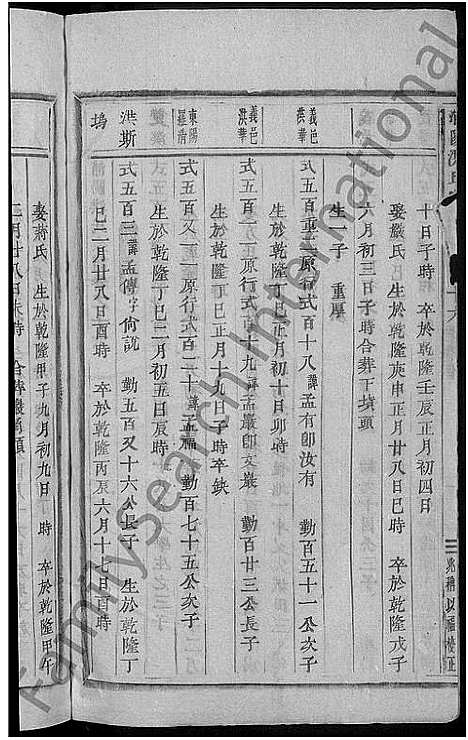 十日子時 卒於乾隆壬辰正月初四日
娶嚴氏 生於乾隆庚申正月廿八日巳時 卒於乾隆戊子
六月初三日子時合葬下墳頭
生一子 重厚
義邑洪華
式五百 原行式百十八 諱孟有卽汝有 勤百五十一公次子
生於乾隆丁巳正月初十日卯時
義邑洪華
式五百 原行式百十九 諱孟嚴卽文嚴 勤百廿三公長子
生於乾隆丁巳正月十九日子時卒缺
東陽
式五百又二 原行式百二十 諱孟福 勤百七十五公次子
生於乾隆丁巳二月初五日辰時
洪斯塢
式五百三 諱孟傳字尙說 勤五百又十六公長子 生於乾隆丁
巳二月廿八日酉時 卒於乾隆丙辰六月十七日酉時
娶蔣氏 生於乾隆甲子九月初九日 時 卒於乾隆甲午
二月廿八日未時 合葬
FamilySearch International